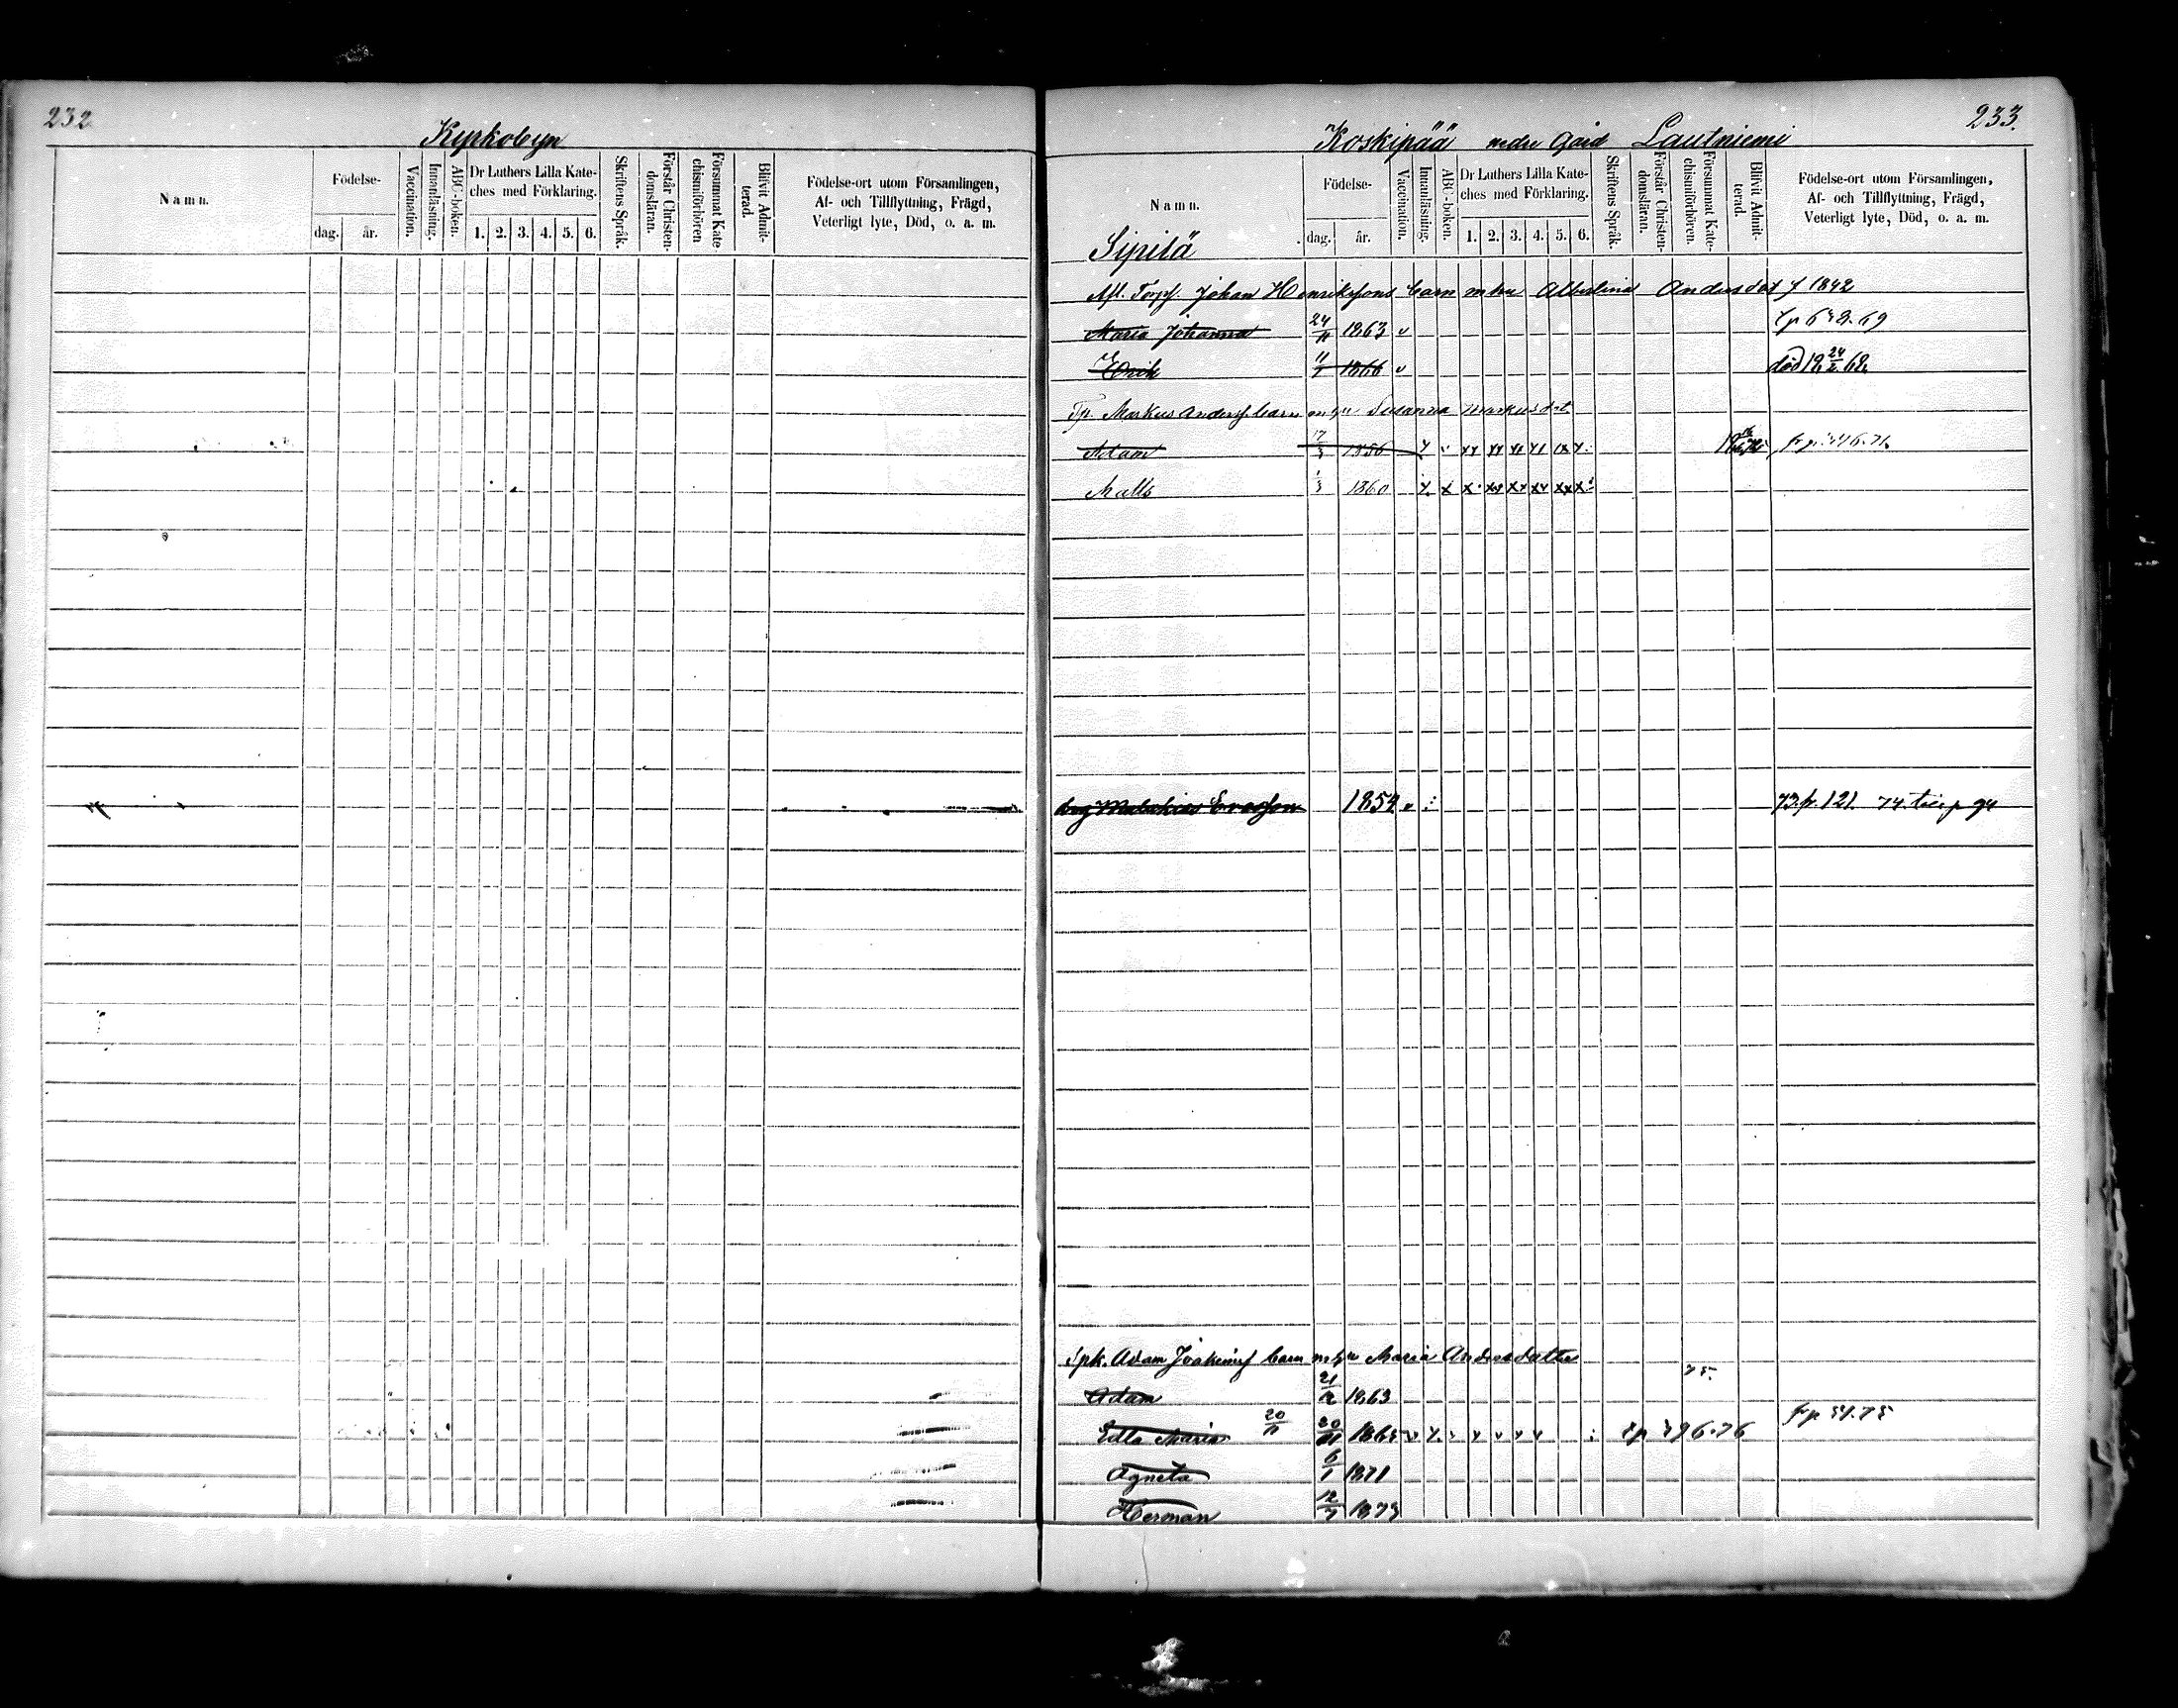 232
Kyrkobyn
Namn.
Födelse-
dag. år.
Vaccination.
Innanläsning.
ABC-boken.
Dr Luthers Lilla Kate-
ches med Förklaring.
1. 2. 3. 4. 5. 6.
Skriftens Språk.
Förstår Christen-
domsläran.
Försummat Kate-
chismiförhören
Blifvit Admit-
terad.
Födelse-ort utom Församlingen,
Af- och Tillflyttning, Frägd,
Veterligt lyte, Död, o. a. m.
233.
Koskipää nedre Gård Lautniemi
Namn.
Födelse-
dag. år.
Vaccination.
Innanläsning.
ABC-boken.
Dr Luthers Lilla Kate-
ches med Förklaring.
1. 2. 3. 4. 5. 6.
Skriftens Språk.
Förstår Christen-
domsläran.
Försummat Kate-
chismiförhören.
Blifvit Admit-
terad.
Födelse-ort utom Församlingen,
Af- och Tillflyttning, Frägd,
Veterligt lyte, Död, o. a. m.
Sipilä
Afl. Torpf. Johan Henrikssons barn m hu Albertina Andersdot f 1842
Maria Johanna 24/11 1863 v
Erik 11/1 1866 v död 18 24/2 68
Tp. Markus Anderss. barn m hu Susanna Markusdot
Adam 17/3 1856
Matts 1860
Malakias 1854 73. fr. 121. 74. till p 94
Spk. Adam Joakimsf barn m hu Maria Andersdotter
75.
Adam 21/12 1863
fr p 51. 75
Edla Maria 20/11 20/11 1865
Agneta 6/1 1871
Herman 12/7 1873